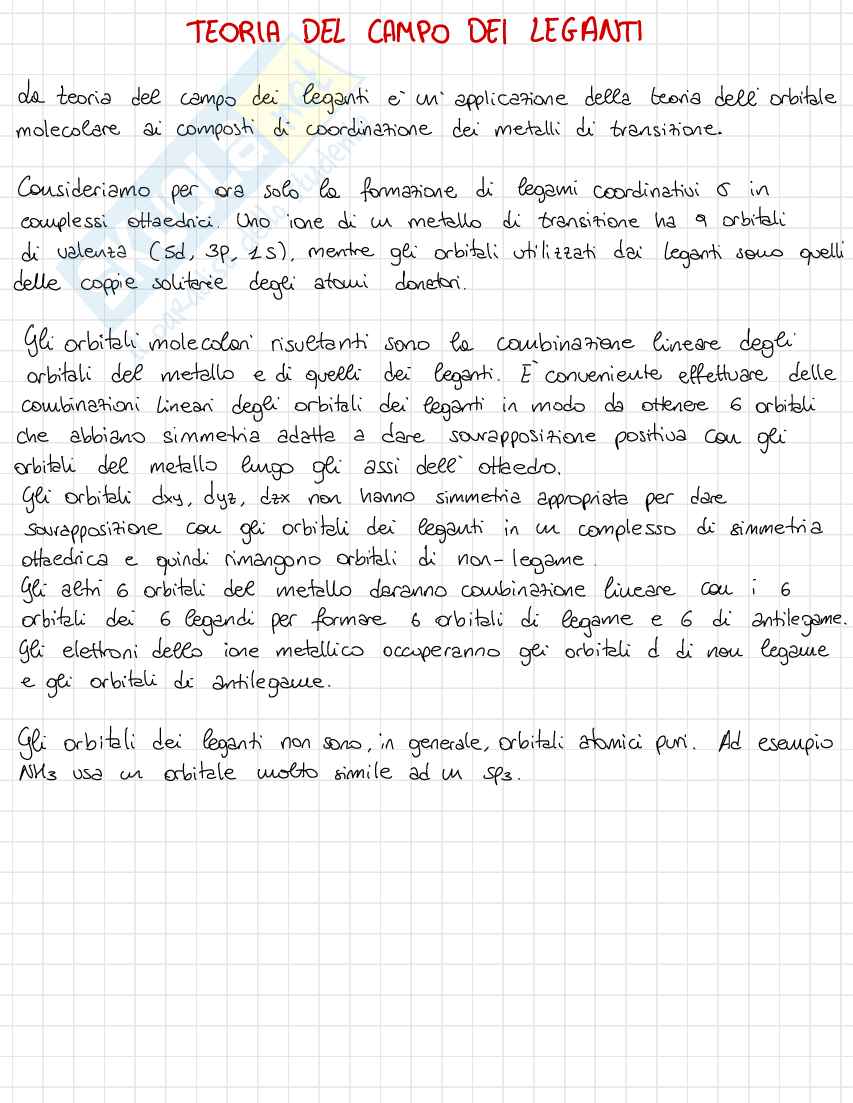 TEORIA DEL CAMPO DEI LEGANTI
La teoria del campo dei leganti e' un' applicazione della teoria dell' orbitale
molecolare ai composti di coordinazione dei metalli di transizione.
Consideriamo per ora solo la formazione di legami coordinativi σ in
complessi ottaedrici. Uno ione di un metallo di transizione ha 9 orbitali
di valenza (5d, 3p, 1s), mentre gli orbitali utilizzati dai leganti sono quelli
delle coppie solitarie degli atomi donatori.
Gli orbitali molecolari risultanti sono la combinazione lineare degli
orbitali del metallo e di quelli dei leganti. E' conveniente effettuare delle
combinazioni lineari degli orbitali dei leganti in modo da ottenere 6 orbitali
che abbiano simmetria adatta a dare sovrapposizione positiva con gli
orbitali del metallo lungo gli assi dell' ottaedro.
Gli orbitali dxy, dyz, dzx non hanno simmetria appropriata per dare
sovrapposizione con gli orbitali dei leganti in un complesso di simmetria
ottaedrica e quindi rimangono orbitali di non-legame.
Gli altri 6 orbitali del metallo daranno combinazione lineare con i 6
orbitali dei 6 legandi per formare 6 orbitali di legame e 6 di antilegame.
Gli elettroni dello ione metallico occuperanno gli orbitali d di non legame
e gli orbitali di antilegame.
Gli orbitali dei leganti non sono, in generale, orbitali atomici puri. Ad esempio
NH3 usa un orbitale molto simile ad un sp3.